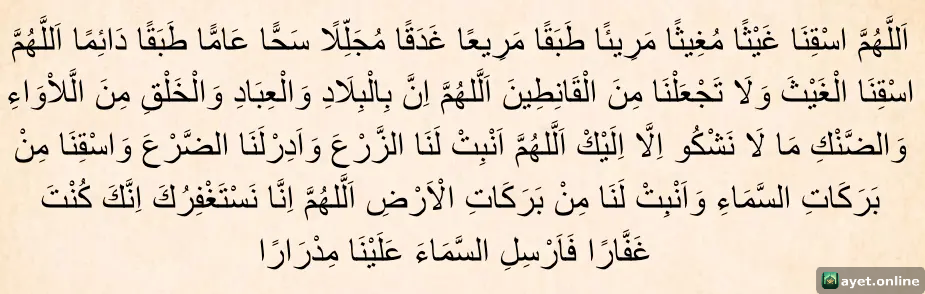 اَللَّهُمَّ اسْقِنَا غَيْثًا مُغِيثًا مَرِيئًا طَبَقًا مَرِيعًا غَدَقًا مُجَلِّلًا سَحًّا عَامًّا طَبَقًا دَائِمًا اَللَّهُمَّ
اسْقِنَا الْغَيْثَ وَلَا تَجْعَلْنَا مِنَ الْقَانِطِينَ اَللَّهُمَّ اِنَّ بِالْبِلَادِ وَالْعِبَادِ وَالْخَلْقِ مِنَ الَّلأْوَاءِ
وَالضَّنْكِ مَا لَا نَشْكُو اِلَّا اِلَيْكَ اَللَّهُمَّ اَنْبِتْ لَنَا الزَّرْعَ وَاَدِرْلَنَا الضَّرْعَ وَاسْقِنَا مِنْ
بَرَكَاتِ السَّمَاءِ وَاَنْبِتْ لَنَا مِنْ بَرَكَاتِ الْاَرْضِ اَللَّهُمَّ اِنَّا نَسْتَغْفِرُكَ اِنَّكَ كُنْتَ
غَفَّارًا فَاَرْسِلِ السَّمَاءَ عَلَيْنَا مِدْرَارًا
ayet.online